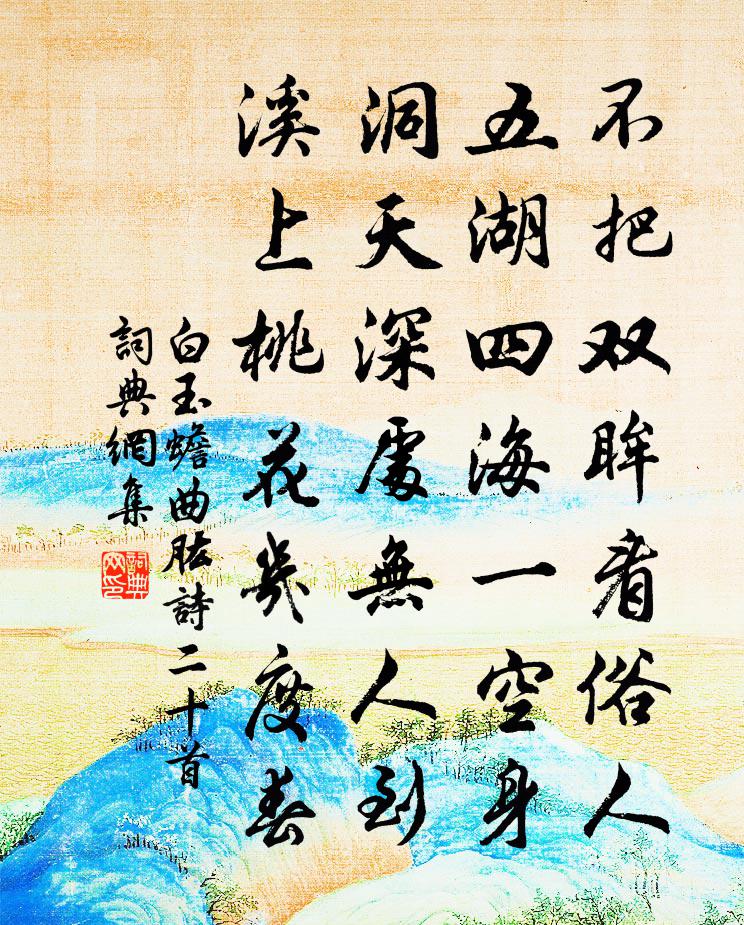 不把双眸看俗人
五湖四海一空身
洞天深處無人到
溪上桃花幾度春
白玉蟾曲肱詩二十首
詞典網集
詞典網印